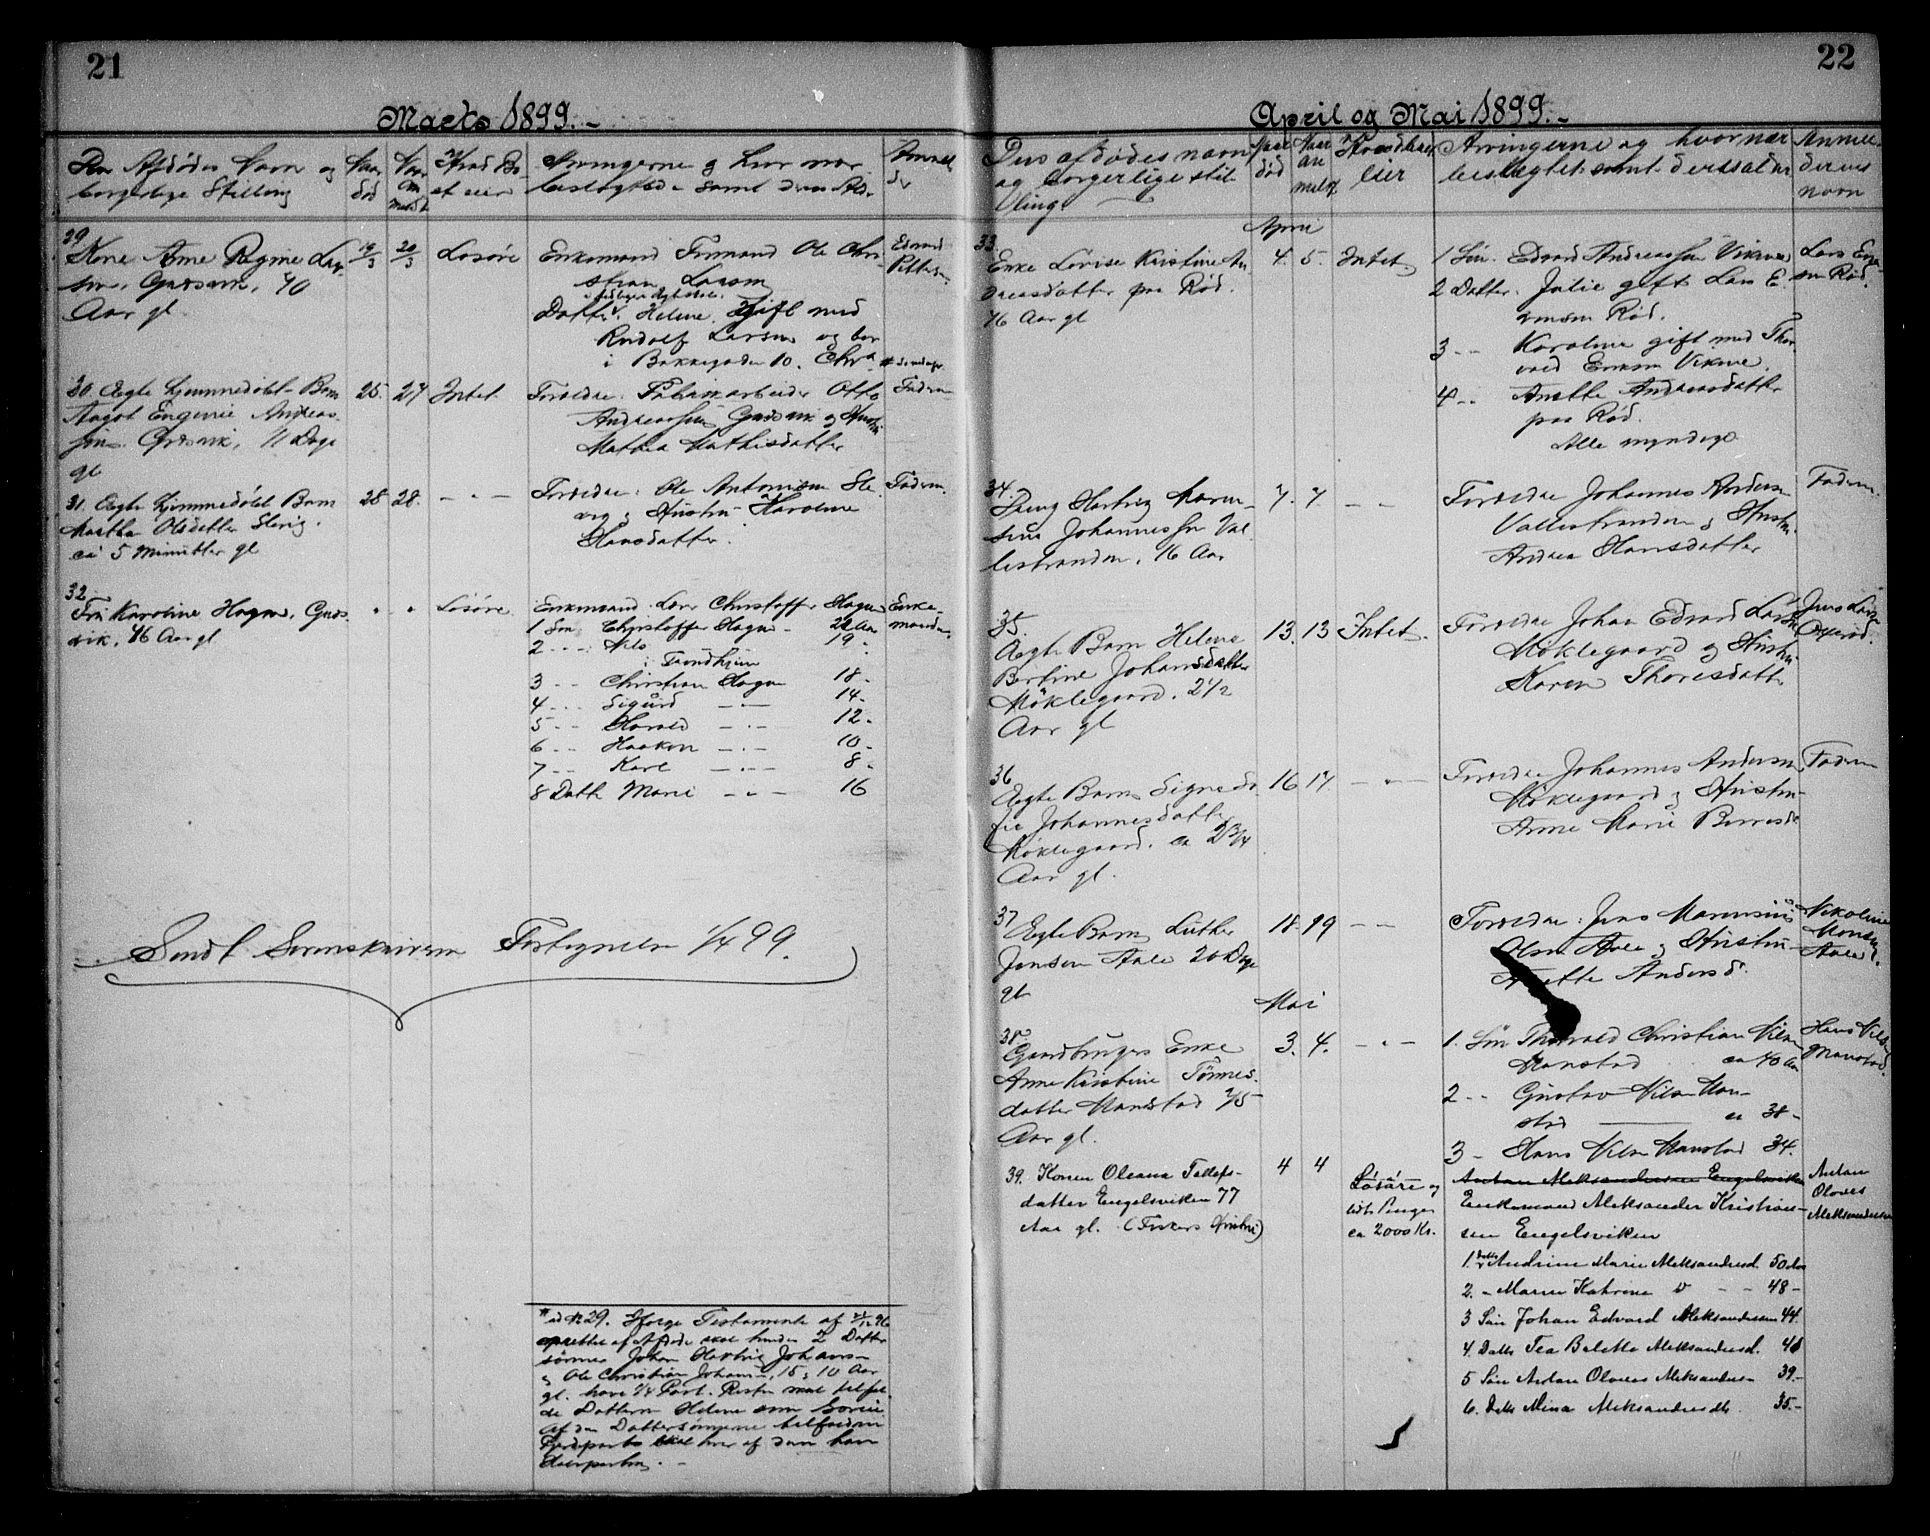 21
Marts 1899.-
Den Afdødes Navn og
borgerlige Stilling
Naar
død
Naar
an
meldt
Hvad Bo
et eier
Arvingerne og hvor nær
beslægtede samt deres Al-
Anmel
der
29
Kone Anne Regine Lar
sen, Gressvik, 70
Aar gl.
19/3
20/3
Løsøre
Enkemand Formand Ole Chri-
stian Larsen
Datter Helene gift med
Rudolf Larsen og bor
i Bakkegaden 10. Chra
Edvard
Pettersen
30. Ægte hjemmedøbt Barn
Aagot Eugenie Andreas
sen Gressvik, 11 Dage
gl
25.
27
Intet
Forældre: Fabrikarbeider Otto
Andreassen Gressvik og Hustru
Mathea Mathisdatter
Faderen
31. Ægte hjemmedøbt Barn
Martha Olsdatter Slevig.
ca 5 Minutter gl
28
28.
- " -
Forældre: Ole Antonsen Sle
vig og Hustru Karoline
Hansdatter.
Faderen.
32
Fru Karoline Hagen, Gres
vik, 46 Aar gl
"
"
Løsøre
Enkemand Lars Christoffer Hagen
1 Søn Christoffer Hagen - 22 Aar
2 - - Nils 19 -
i Trondhjem
3 - - Christian Hagen 18 -
4 - - Sigurd - " - 14 -
5 - - Harald - " - 12 -
6 - - Haakon - " - 10 -
7 - - Karl - " - 8 -
8 Datt Marie - " - 16
Enke-
manden
Sendt Sorenskriveren Fortegnelse 1/4 99.
* ad N 29. Ifølge Testamente af
oprettet af Afdøde skal hendes 2 Datter
sønner Johan Hartvig Johans-
og Ole Christian Johans-, 15 og 10 Aar
gl. have 1/4 Part. Resten skal tilfal
de Datteren Helene
af den Dattersønnerne tilfaldne
Fjerdepart skal hver af dem have
Halvparten. -
22
April og Mai 1899.-
Den afdødes navn
og borgerlige stil
ling
Naar
død
Naar
an
meldt
Hvad Bo
eier
Arvingerne og hvor nær
beslægtet samt deres alder
Anmel-
derens
navn
April
33.
Enke Lovise Kristine An
dreasdatter paa Rød.
76 Aar gl
4.
5.
Intet
1 Søn. Edvard Andreassen Vikene
2 Datter. Julie gift Lars E.
vensen Rød.
3 - - Karoline gift med Thor
vald Eriksen Vikene.
4 - - Anette Andreasdatter
paa Rød.
Alle myndige
Lars Even
sen Rød.
34.
Dreng Hartvig Maren-
sius Johannessen Val
lestranden, 16 Aar
7.
7
- -
Forældre Johannes Andersen
Vallestranden og Hustru
Andrea Hansdatter
Faderen.
35.
Ægte Barn Helene
Bertine Johansdatter
Møklegaard. 2 1/2
Aar gl
13.
13
Intet.
Forældre Johan Edvard Larsen
Møklegaard og Hustru
Karen Thoresdatter
Jens Larsen
36
Ægte Barn Signe So
fie Johannesdatter
Møklegaard. ca 2 3/4
Aar gl.
16
17
- " -
Forældre Johannes Andersen
Møklegaard og Hustru
Anne Marie
Faderen
37
Ægte Barn Luther
Jensen Aale 20 Dage
gl
18.
19
- -
Forældre: Jens Marensius
Olsen Aale og Hustru
Anette Andersd.
Nikoline
Monsen
Aale
Mai
38.
Gaardbruger Enke
Anne Kristine Tønnes-
datter Manstad 75
Aar gl.
3.
4.
- " -
1. Søn Thorvald Christian Nilsen
Manstad ca 40 Aar
2 - - Gustav Nilsen Man-
stad ca 38 -
3 - Hans Nilsen Manstad 34.
Hans Nilsen
Manstad.
39. Konen Oleana Tollefs-
datter Engelsviken 77
Aar gl. (Fiskers Hustru)
4
4
Løsøre og
lidt Penger
ca 2000 Kr.
Anton Aleksandersen Engelsviken
Enkemand Aleksander Kristian-
sen Engelsviken
1. Datter Andrine Marie Aleksandersd. 50 Aar
2. - Maren Katrine " - - 48 -
3 Søn Johan Edvard Aleksandersen 44.
4. Datts Tea Balette Aleksandersd.
5 Søn Anton Olves Aleksandersen 39.-
6. Datts Mina Aleksandersdtr. 35.-
Anton
Olves
Aleksandersen